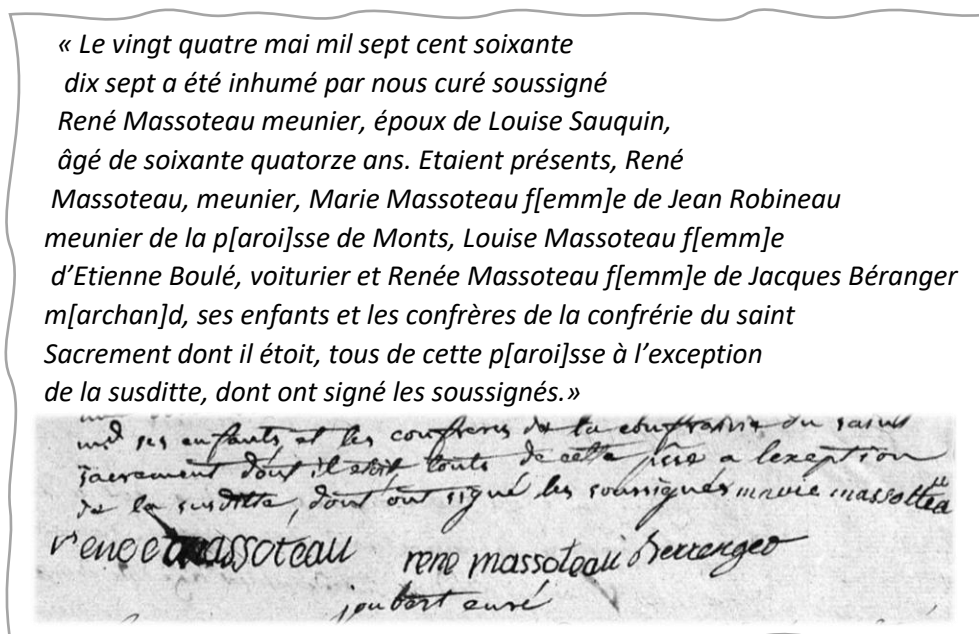 « Le vingt quatre mai mil sept cent soixante
dix sept a été inhumé par nous curé soussigné
René Massoteau meunier, époux de Louise Sauquin,
âgé de soixante quatorze ans. Etaient présents, René
Massoteau, meunier, Marie Massoteau f[emm]e de Jean Robineau
meunier de la p[aroi]sse de Monts, Louise Massoteau f[emm]e
d’Etienne Boulé, voiturier et Renée Massoteau f[emm]e de Jacques Béranger
m[archan]d, ses enfants et les confrères de la confrérie du saint
Sacrement dont il étoit, tous de cette p[aroi]sse à l’exception
de la susditte, dont ont signé les soussignés.»
md ses enfants et les confreres de la confrairie du saint
sacrement dont il etoit touts de cette psse a lexception
de la susditte, dont ont signé les soussignés marie massottea
massoteau rene massoteau Berrenger
joubert curé